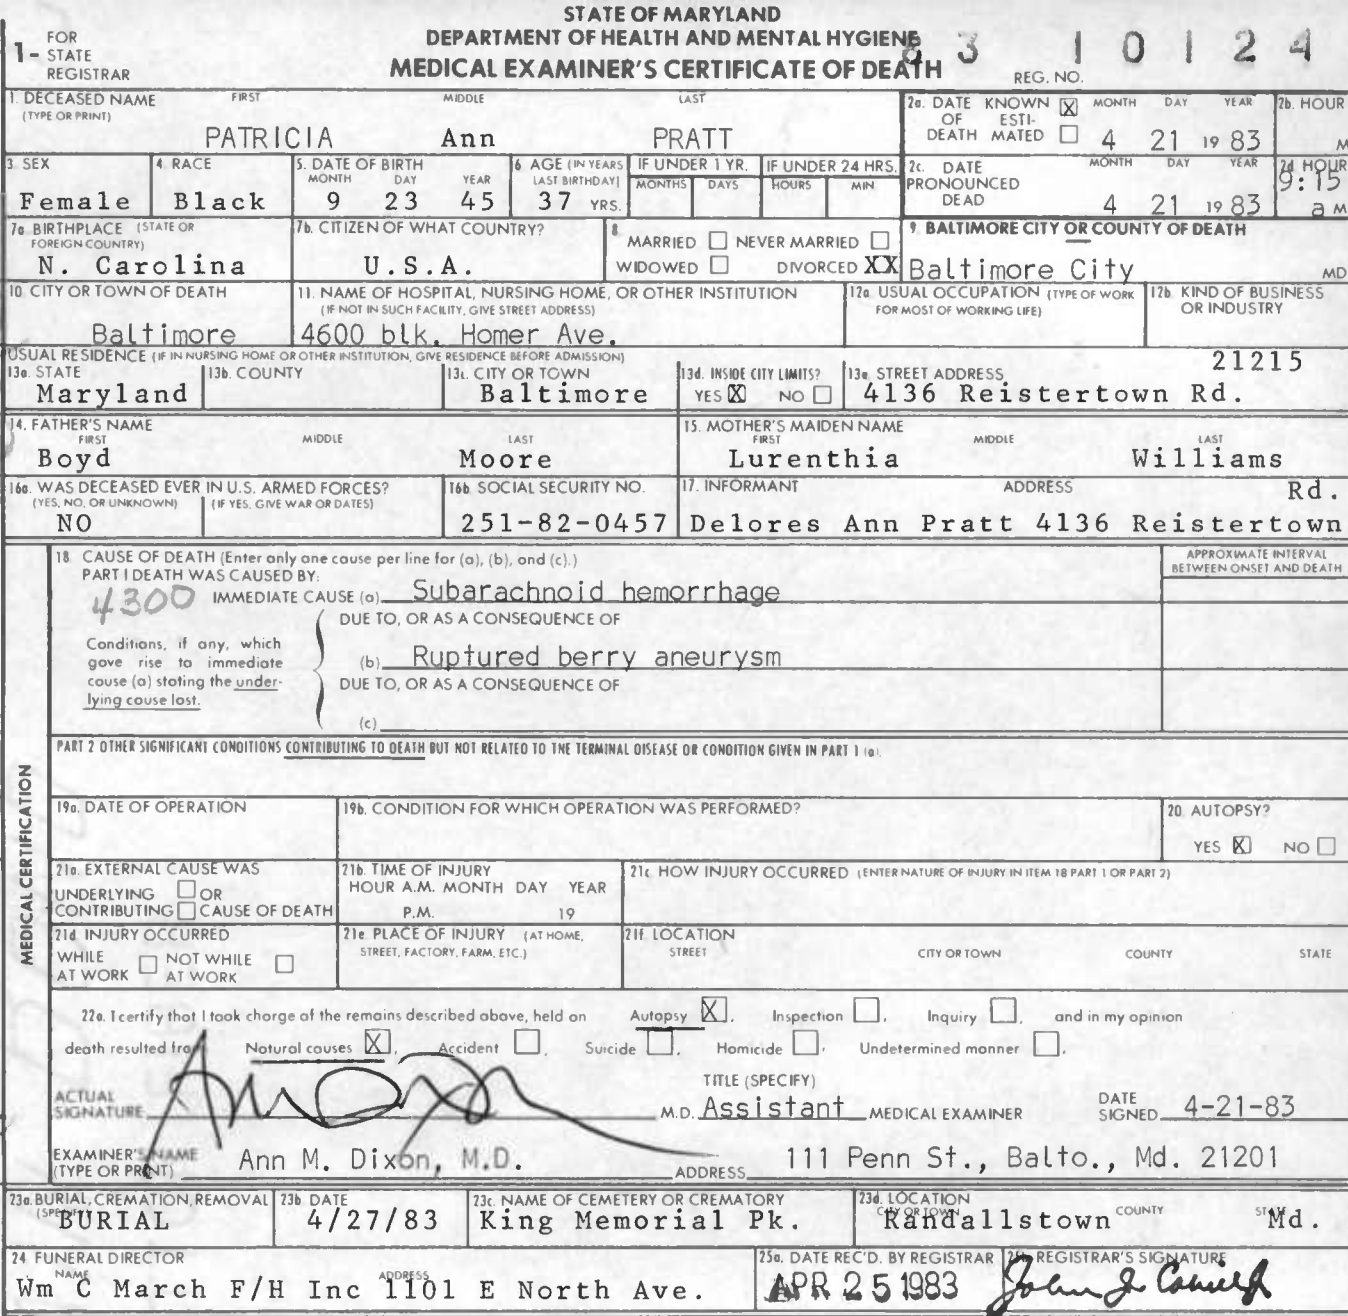 STATE OF MARYLAND
DEPARTMENT OF HEALTH AND MENTAL HYGIENE
MEDICAL EXAMINER'S CERTIFICATE OF DEATH
1- FOR STATE REGISTRAR
REG. NO. 83 10124
1. DECEASED NAME (TYPE OR PRINT) FIRST MIDDLE LAST
PATRICIA Ann PRATT
2a. DATE OF DEATH KNOWN [X] ESTIMATED [ ] MONTH DAY YEAR
4 21 19 83
2b. HOUR M
3. SEX
Female
4. RACE
Black
5. DATE OF BIRTH MONTH DAY YEAR
9 23 45
6. AGE (IN YEARS LAST BIRTHDAY)
37 YRS.
IF UNDER 1 YR. MONTHS DAYS
IF UNDER 24 HRS. HOURS MIN.
2c. DATE PRONOUNCED DEAD MONTH DAY YEAR
4 21 19 83
2d. HOUR
9:15 a M
7a. BIRTHPLACE (STATE OR FOREIGN COUNTRY)
N. Carolina
7b. CITIZEN OF WHAT COUNTRY?
U.S.A.
8. MARRIED [ ] NEVER MARRIED [ ]
WIDOWED [ ] DIVORCED XX
9. BALTIMORE CITY OR COUNTY OF DEATH
Baltimore City MD
10. CITY OR TOWN OF DEATH
Baltimore
11. NAME OF HOSPITAL, NURSING HOME, OR OTHER INSTITUTION
(IF NOT IN SUCH FACILITY, GIVE STREET ADDRESS)
4600 blk. Homer Ave.
12a. USUAL OCCUPATION (TYPE OF WORK FOR MOST OF WORKING LIFE)
12b. KIND OF BUSINESS OR INDUSTRY
USUAL RESIDENCE (IF IN NURSING HOME OR OTHER INSTITUTION, GIVE RESIDENCE BEFORE ADMISSION)
13a. STATE
Maryland
13b. COUNTY
13c. CITY OR TOWN
Baltimore
13d. INSIDE CITY LIMITS?
YES [X] NO [ ]
13e. STREET ADDRESS 21215
4136 Reistertown Rd.
14. FATHER'S NAME FIRST MIDDLE LAST
Boyd Moore
15. MOTHER'S MAIDEN NAME FIRST MIDDLE LAST
Lurenthia Williams
16a. WAS DECEASED EVER IN U.S. ARMED FORCES?
(YES, NO, OR UNKNOWN) (IF YES, GIVE WAR OR DATES)
NO
16b. SOCIAL SECURITY NO.
251-82-0457
17. INFORMANT ADDRESS Rd.
Delores Ann Pratt 4136 Reistertown
MEDICAL CERTIFICATION
18. CAUSE OF DEATH (Enter only one cause per line for (a), (b), and (c).)
APPROXIMATE INTERVAL BETWEEN ONSET AND DEATH
PART I DEATH WAS CAUSED BY:
4300 IMMEDIATE CAUSE (a) Subarachnoid hemorrhage
DUE TO, OR AS A CONSEQUENCE OF
Conditions, if any, which gave rise to immediate cause (a) stating the underlying cause last.
(b) Ruptured berry aneurysm
DUE TO, OR AS A CONSEQUENCE OF
(c)
PART 2 OTHER SIGNIFICANT CONDITIONS CONTRIBUTING TO DEATH BUT NOT RELATED TO THE TERMINAL DISEASE OR CONDITION GIVEN IN PART 1 (a).
19a. DATE OF OPERATION
19b. CONDITION FOR WHICH OPERATION WAS PERFORMED?
20. AUTOPSY?
YES [X] NO [ ]
21a. EXTERNAL CAUSE WAS
UNDERLYING [ ] OR
CONTRIBUTING [ ] CAUSE OF DEATH
21b. TIME OF INJURY
HOUR A.M. MONTH DAY YEAR
P.M. 19
21c. HOW INJURY OCCURRED (ENTER NATURE OF INJURY IN ITEM 18 PART 1 OR PART 2)
21d. INJURY OCCURRED
WHILE AT WORK [ ] NOT WHILE AT WORK [ ]
21e. PLACE OF INJURY (AT HOME, STREET, FACTORY, FARM, ETC.)
21f. LOCATION
STREET CITY OR TOWN COUNTY STATE
22a. I certify that I took charge of the remains described above, held an Autopsy [X], Inspection [ ], Inquiry [ ], and in my opinion
death resulted from Natural causes [X], Accident [ ], Suicide [ ], Homicide [ ], Undetermined manner [ ].
ACTUAL SIGNATURE Ann Dixon M.D.
TITLE (SPECIFY)
Assistant MEDICAL EXAMINER
DATE SIGNED 4-21-83
EXAMINER'S NAME (TYPE OR PRINT) Ann M. Dixon, M.D.
ADDRESS 111 Penn St., Balto., Md. 21201
23a. BURIAL, CREMATION, REMOVAL
BURIAL
23b. DATE
4/27/83
23c. NAME OF CEMETERY OR CREMATORY
King Memorial Pk.
23d. LOCATION CITY OR TOWN COUNTY
Randallstown Md.
24. FUNERAL DIRECTOR
NAME ADDRESS
Wm C March F/H Inc 1101 E North Ave.
25a. DATE REC'D. BY REGISTRAR
APR 25 1983
REGISTRAR'S SIGNATURE
John J.